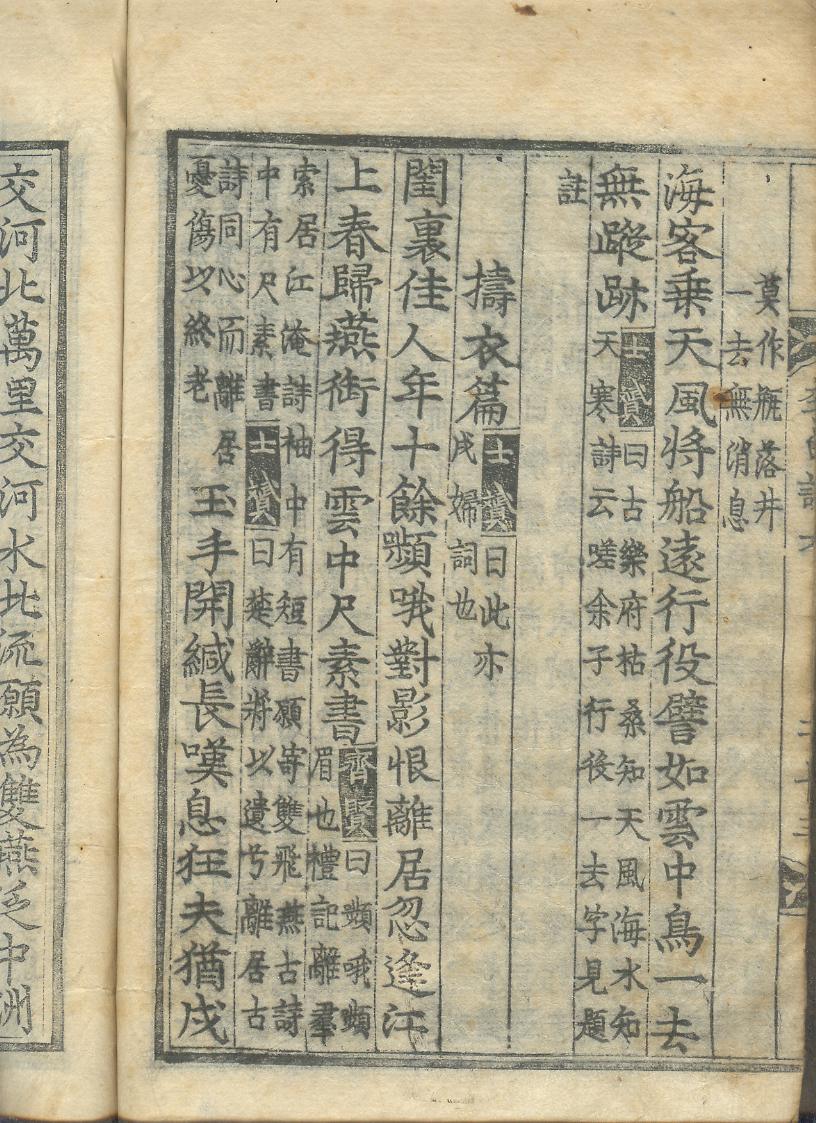 莫作瓶落井
一去無消息
海客乗天風將船遠行役譬如雲中鳥一去
無蹤跡
士贇曰古樂府枯桑知天風海水知
天寒詩云嗟余子行後一去字見題
註
擣衣篇
士贇曰此亦
戍婦詞也
閨裏佳人年十餘顰哦對影恨離居忽逢江
上春歸燕銜得雲中尺素書
齊賢曰顰哦顰
眉也禮記離羣
索居江淹詩袖中有短書願寄雙飛燕古詩
中有尺素書士贇曰楚辭將以遺兮離居古
詩同心而離居
憂傷以終老
玉手開緘長嘆息狂夫猶戍
交河北萬里交河水北流願為雙燕泛中洲